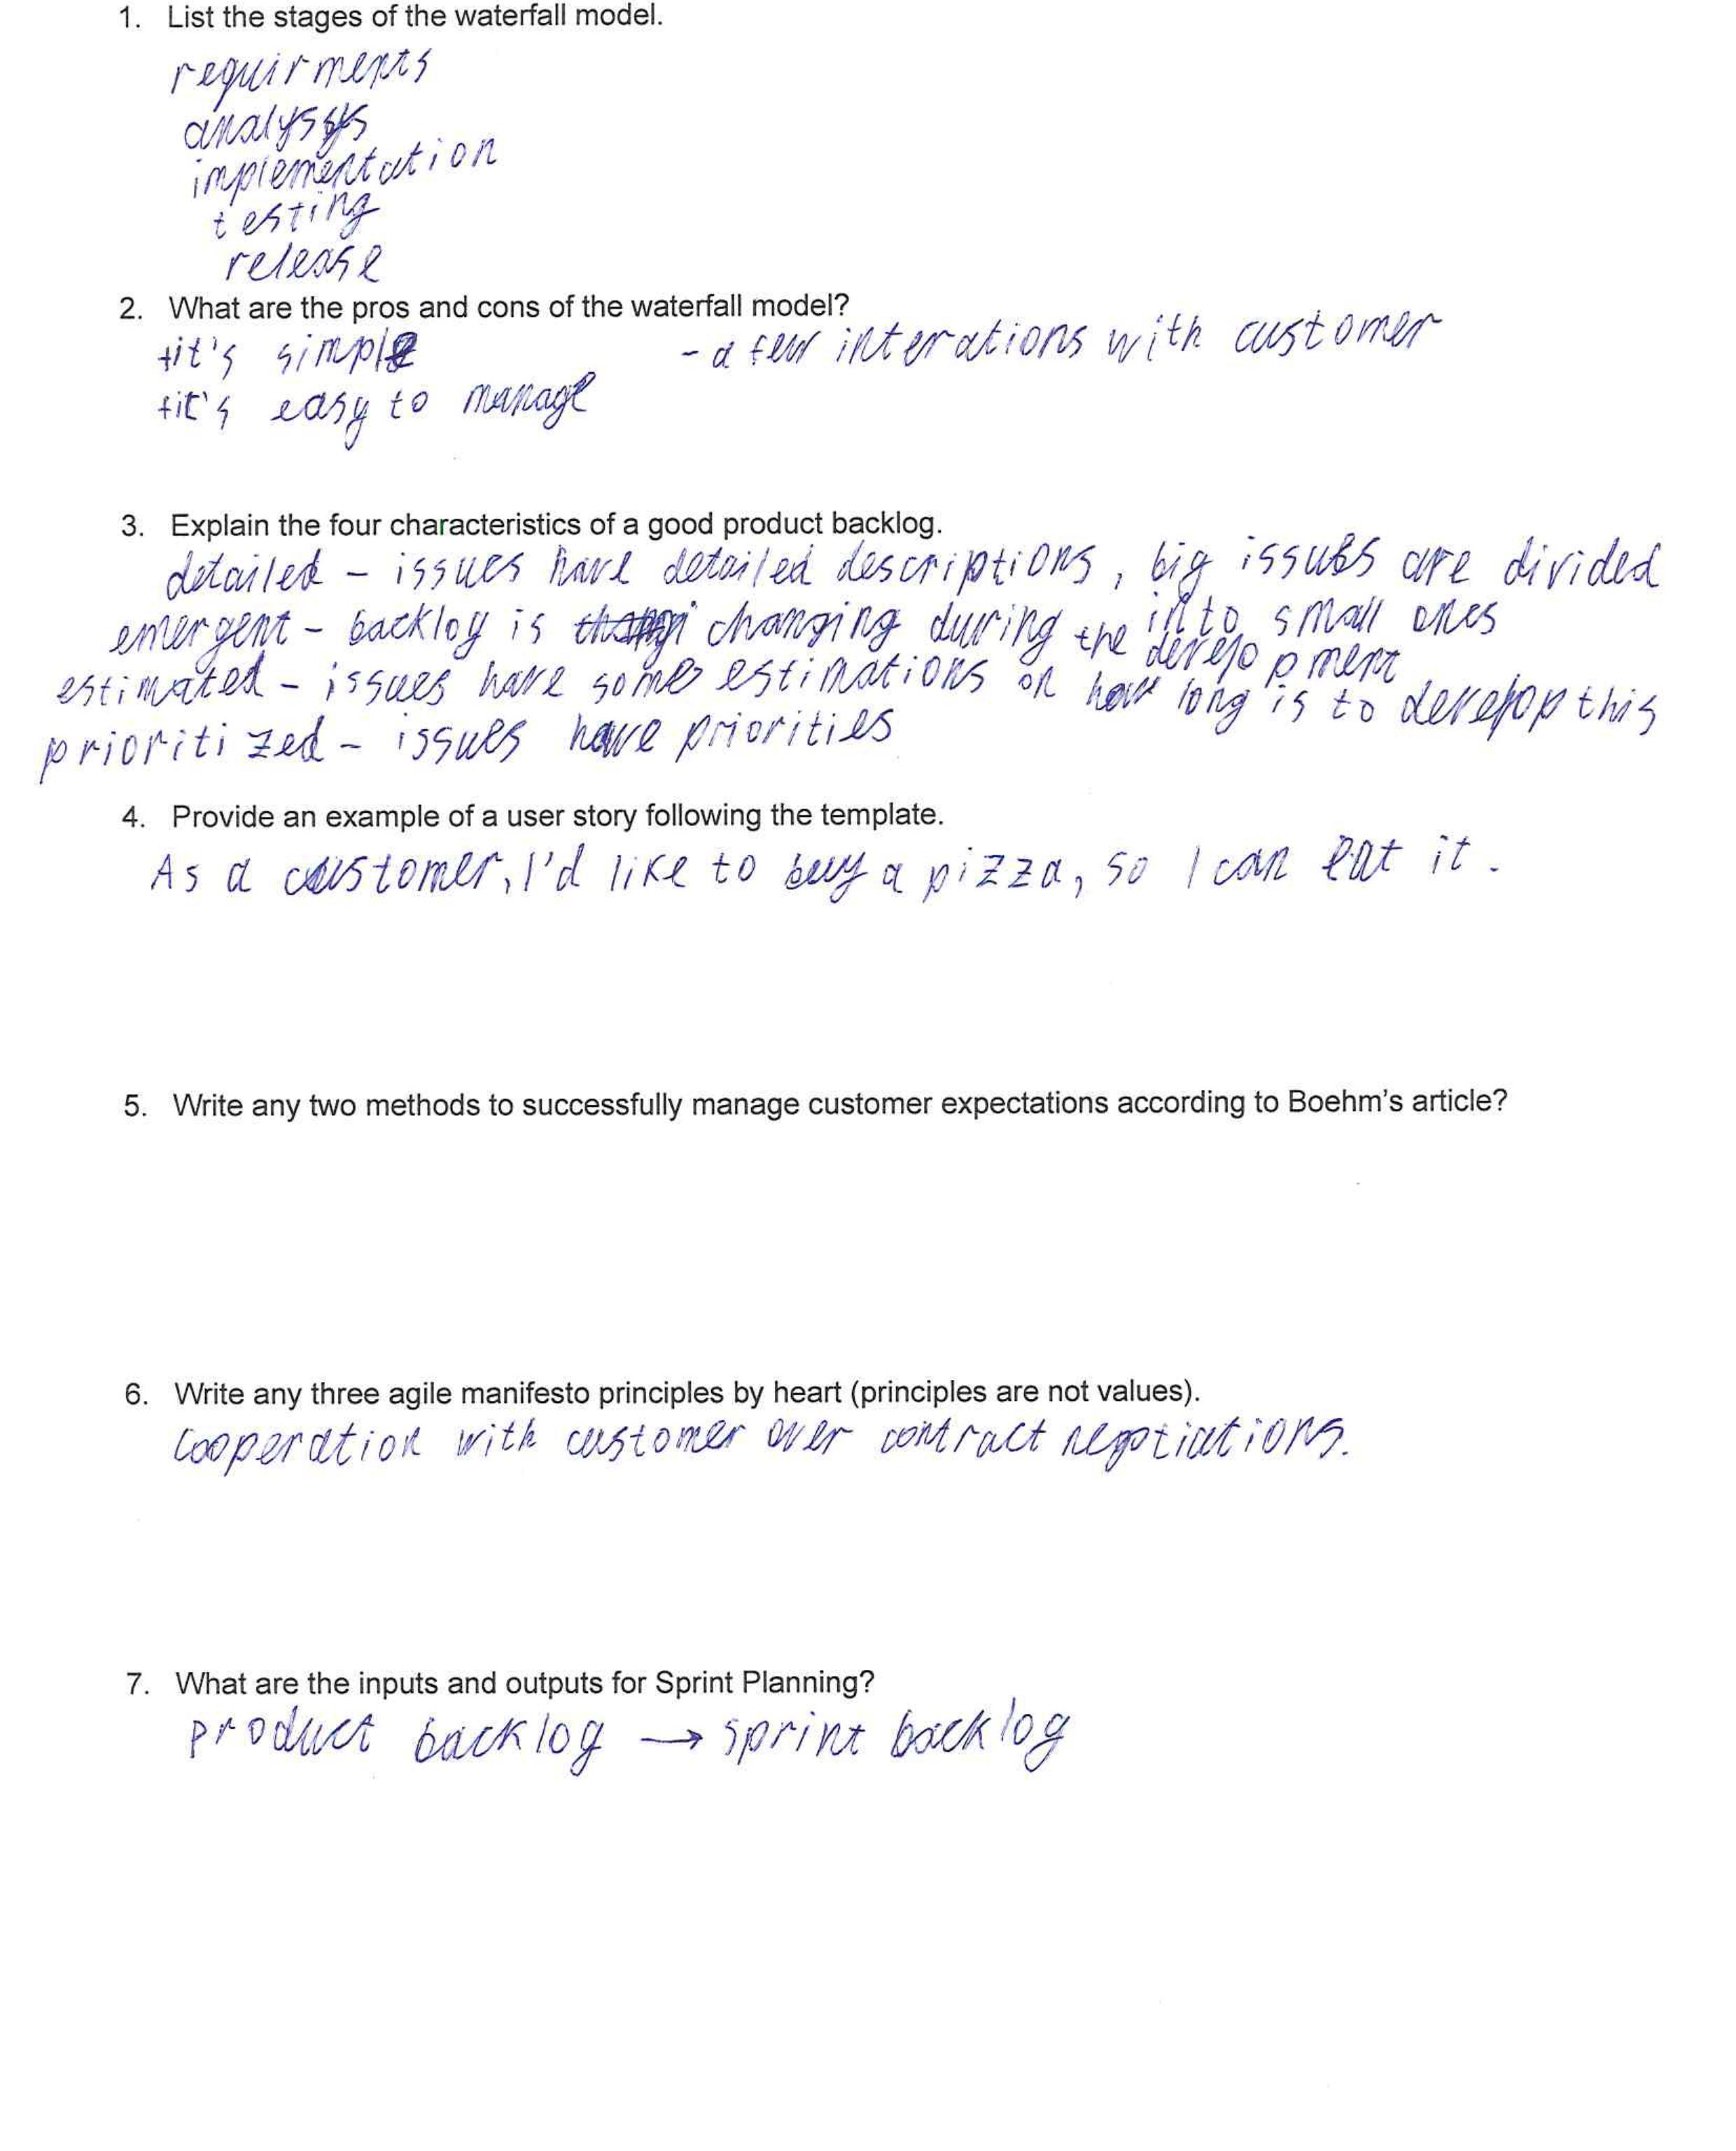 1. List the stages of the waterfall model.
requirments
analysys
implementation
testing
release
2. What are the pros and cons of the waterfall model?
+it's simple - a few interations with customer
+it's easy to manage
3. Explain the four characteristics of a good product backlog.
detailed - issues have detailed descriptions, big issues are divided
into small ones
emergent - backlog is changing during the development
estimated - issues have some estimations on how long is to develop this
prioritized - issues have priorities
4. Provide an example of a user story following the template.
As a customer, I'd like to buy a pizza, so I can eat it.
5. Write any two methods to successfully manage customer expectations according to Boehm's article?
6. Write any three agile manifesto principles by heart (principles are not values).
Cooperation with customer over contract negotiations.
7. What are the inputs and outputs for Sprint Planning?
product backlog → sprint backlog